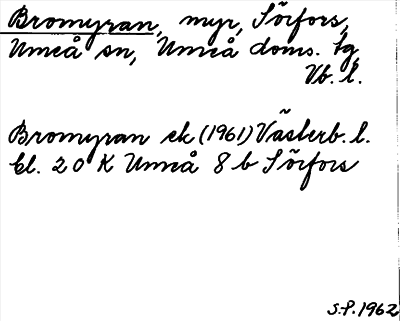 Bromyran, myr, Sörfors,
Umeå sn, Umeå doms. tg
Vb. l.
Bromyran ek (1961) Västerb. l.
bl. 20 K Umeå 8 b Sörfors
S.P. 1962